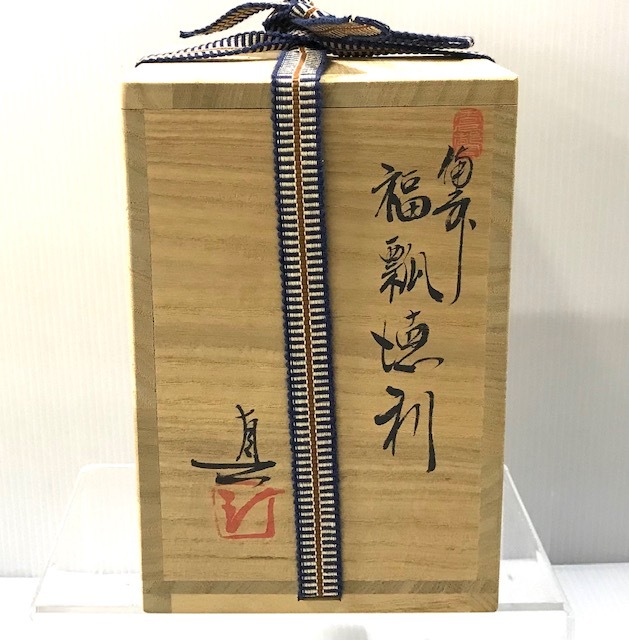 備前
福瓢徳利
真